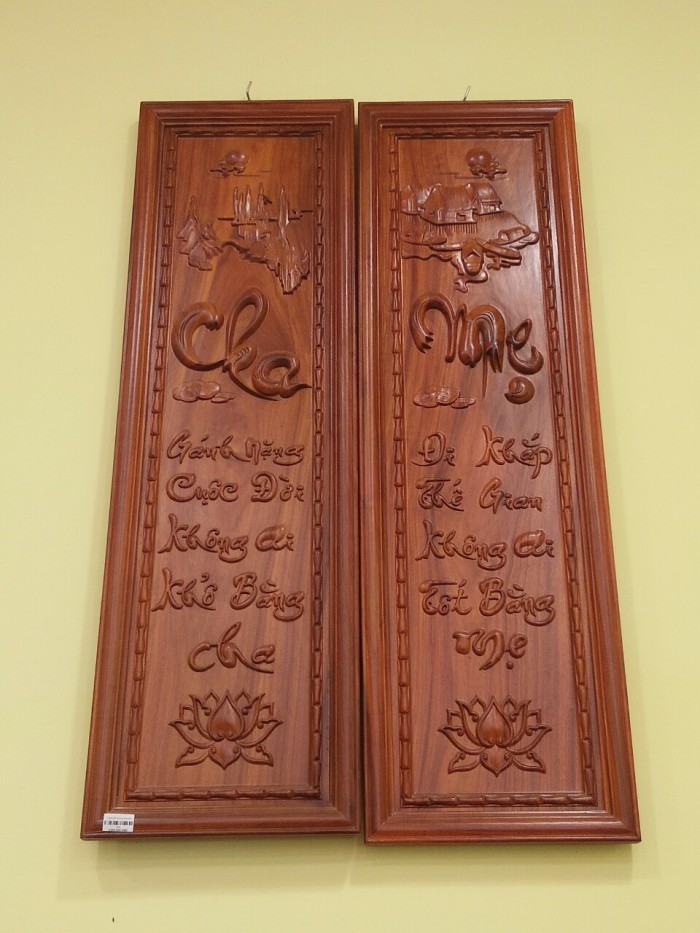 Cha
Gánh Nặng
Cuộc Đời
Không ai
Khổ Bằng
cha
Mẹ
Đi Khắp
Thế Gian
Không ai
Tốt Bằng
Mẹ